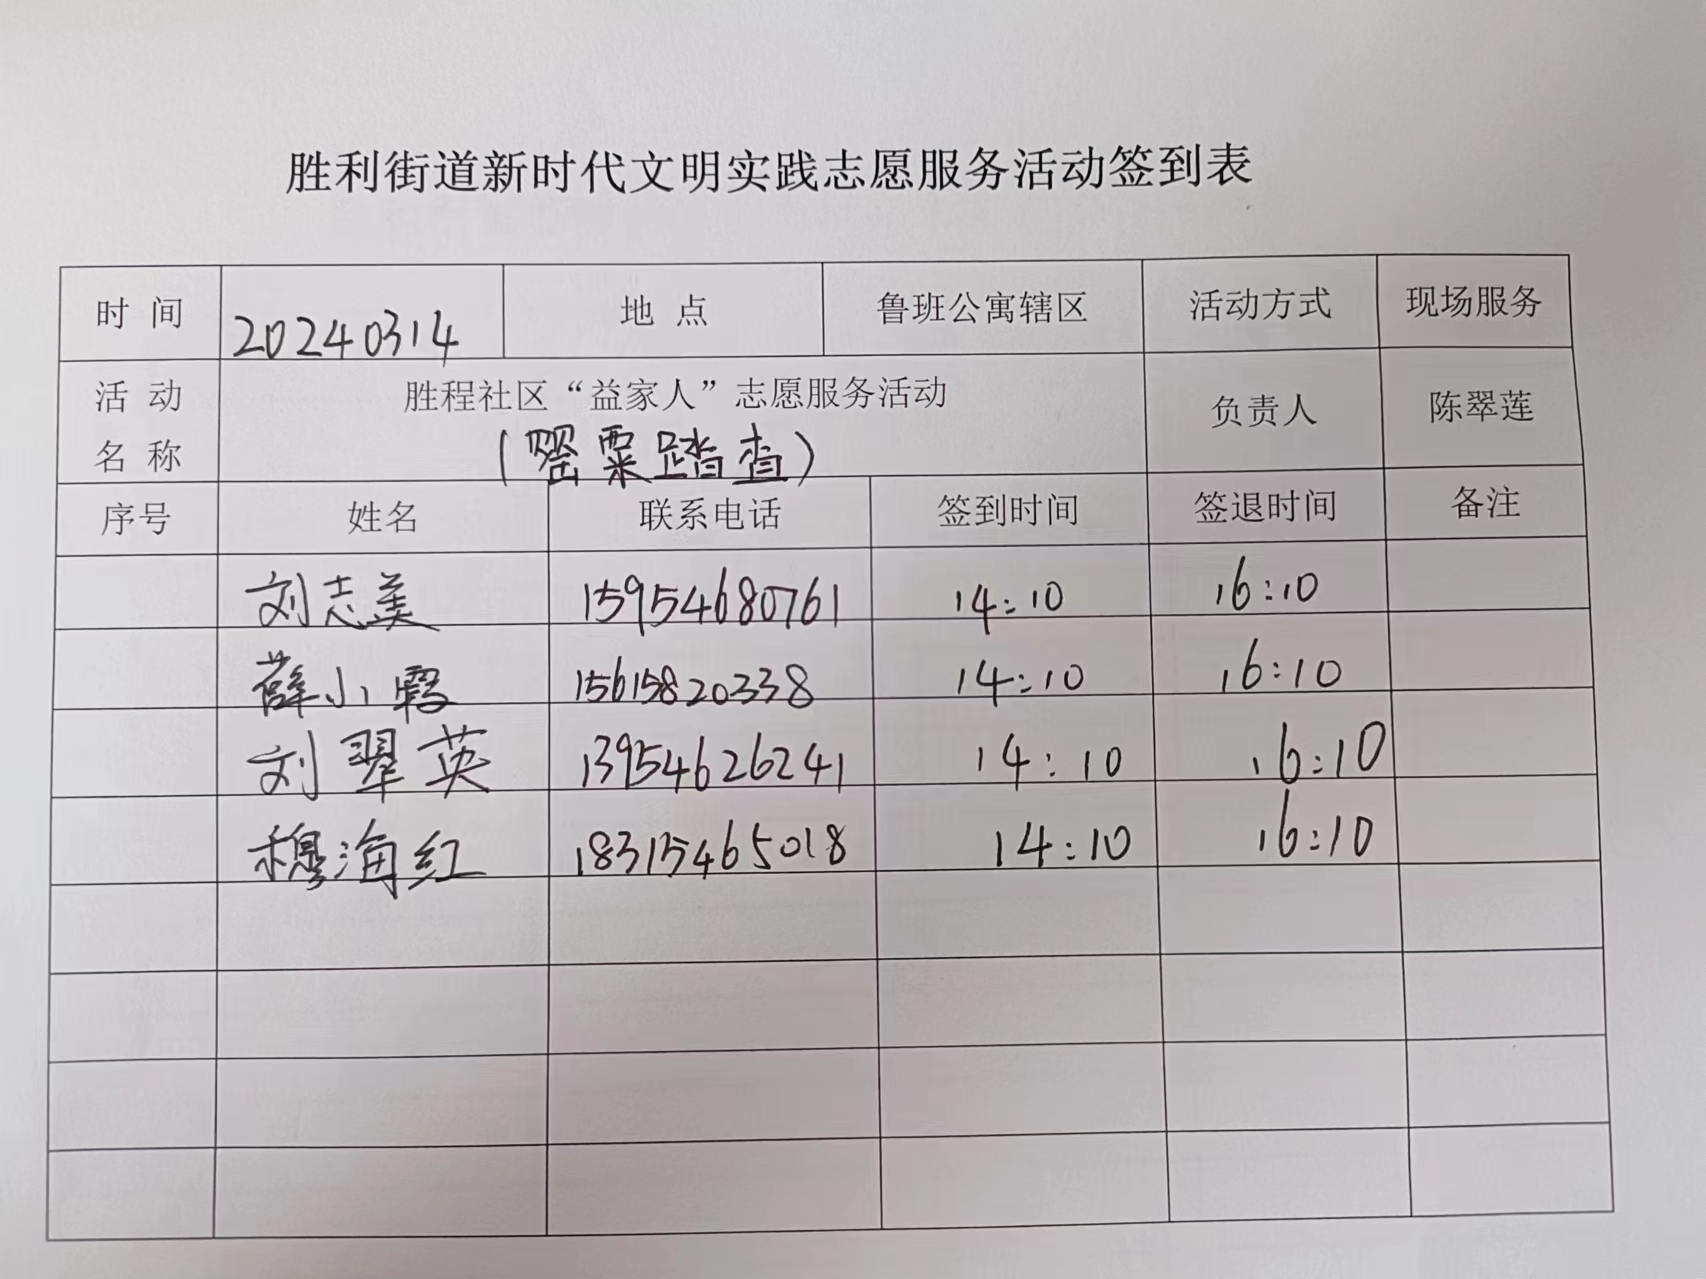 胜利街道新时代文明实践志愿服务活动签到表
时 间 20240314 地 点 鲁班公寓辖区 活动方式 现场服务
活 动 名 称 胜程社区“益家人”志愿服务活动 负责人 陈翠莲
(罂粟踏查)
序号 姓名 联系电话 签到时间 签退时间 备注
刘志美 15954680761 14:10 16:10
薛小霞 15615820338 14:10 16:10
刘翠英 13954626241 14:10 16:10
穆海红 18315465018 14:10 16:10